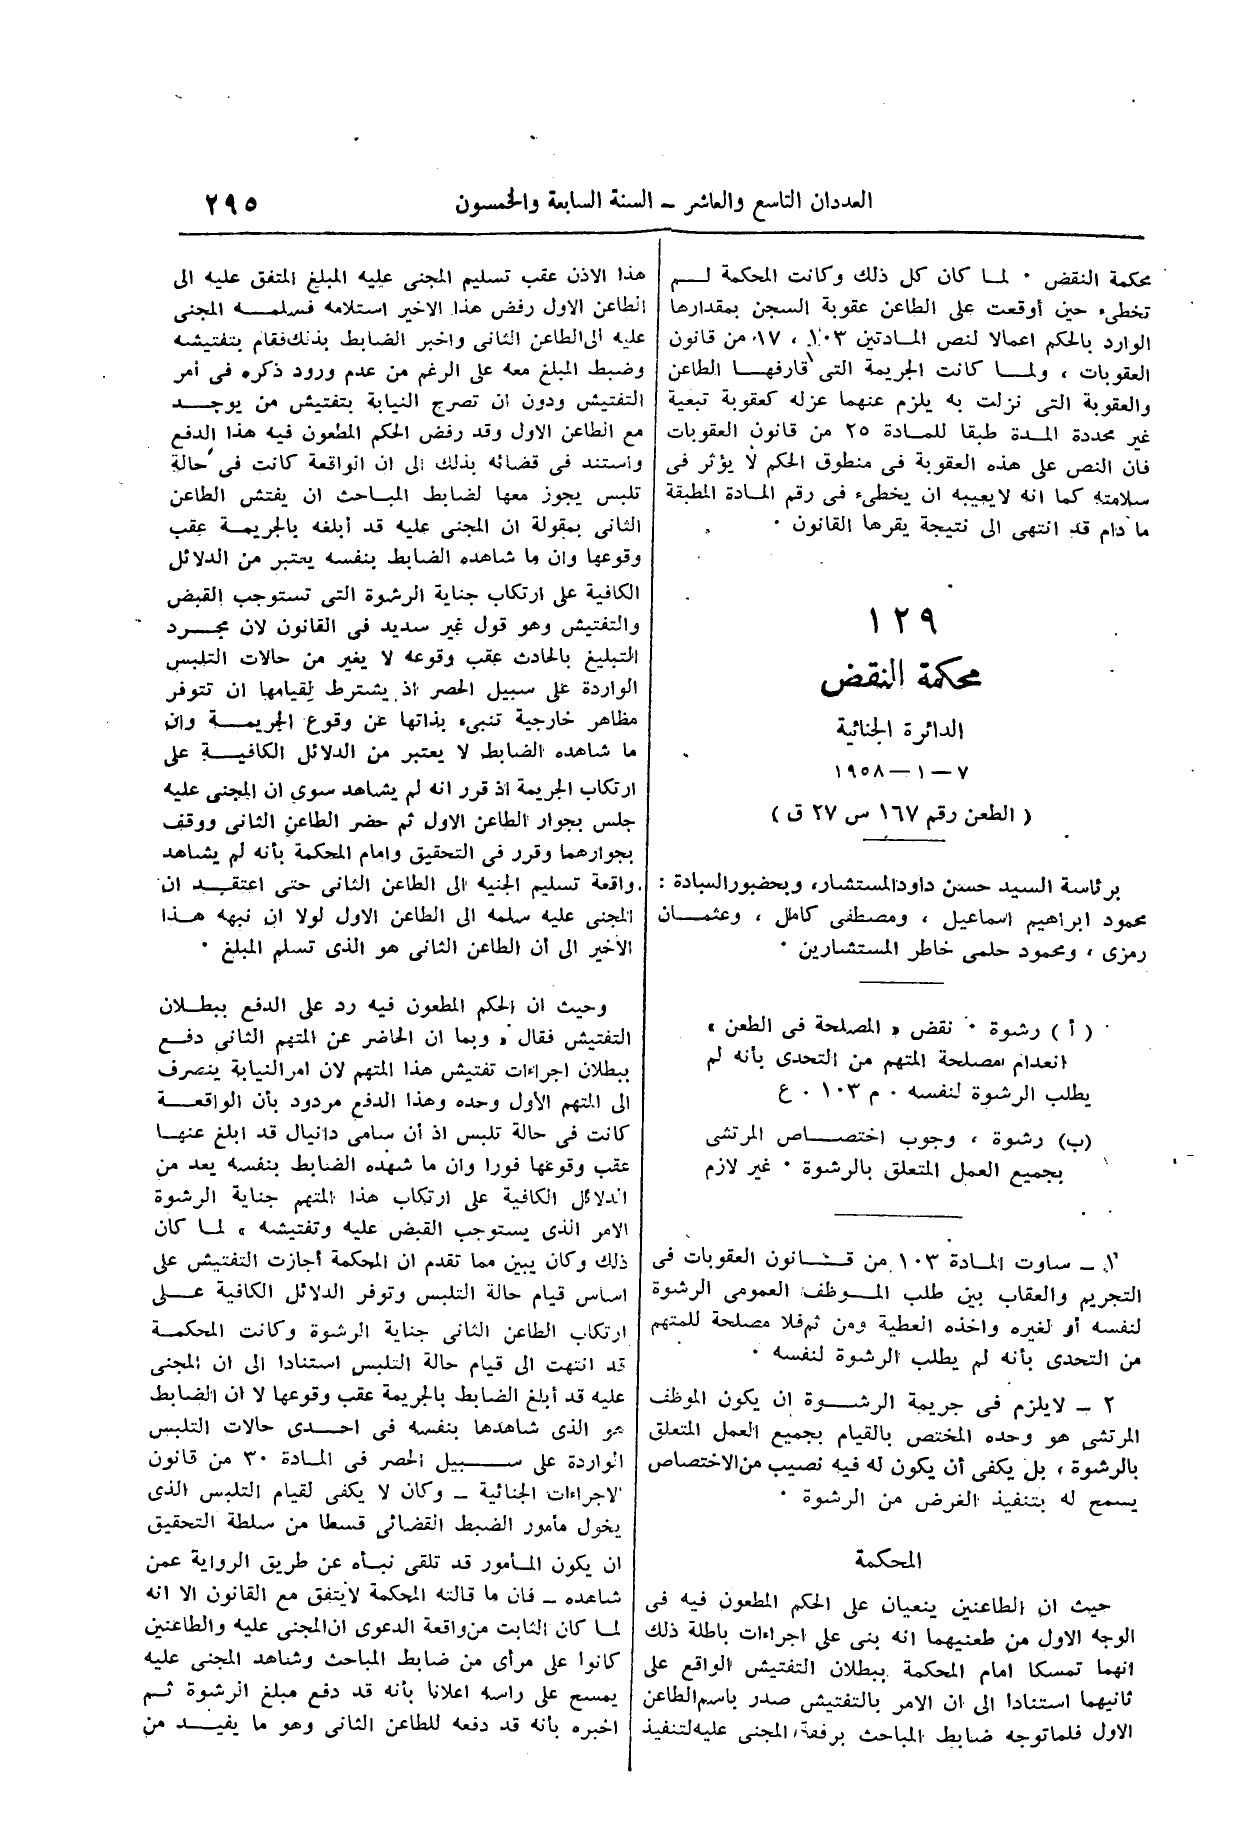 العددان التاسع والعاشر – السنة السابعة والخمسون
٢٩٥
محكمة النقض ٠ لما كان كل ذلك وكانت المحكمة لم
تخطىء حين أوقعت على الطاعن عقوبة السجن بمقدارها
الوارد بالحكم اعمالا لنص المادتين ١٠٣ ، ١٧ من قانون
العقوبات ، ولما كانت الجريمة التى قارفها الطاعن
والعقوبة التى نزلت به يلزم عنهما عزله كعقوبة تبعية
غير محددة المدة طبقا للمادة ٢٥ من قانون العقوبات
فان النص على هذه العقوبة فى منطوق الحكم لا يؤثر فى
سلامته كما انه لايعيبه ان يخطىء فى رقم المادة المطبقة
ما دام قد انتهى الى نتيجة يقرها القانون ٠
١٢٩
محكمة النقض
الدائرة الجنائية
٧ – ١ – ١٩٥٨
( الطعن رقم ١٦٧ س ٢٧ ق )
برئاسة السيد حسن داود المستشار، وبحضور السادة :
محمود ابراهيم اسماعيل ، ومصطفى كامل ، وعثمان
رمزى ، ومحمود حلمى خاطر المستشارين ٠
( أ ) رشوة ٠ نقض « المصلحة فى الطعن »
انعدام مصلحة المتهم من التحدى بأنه لم
يطلب الرشوة لنفسه ٠ م ١٠٣ ٠ ع
(ب) رشوة ، وجوب اختصاص المرتشى
بجميع العمل المتعلق بالرشوة ٠ غير لازم
١ – ساوت المادة ١٠٣ من قانون العقوبات فى
التجريم والعقاب بين طلب الموظف العمومى الرشوة
لنفسه أو لغيره واخذه العطية ومن ثم فلا مصلحة للمتهم
من التحدى بأنه لم يطلب الرشوة لنفسه ٠
٢ – لايلزم فى جريمة الرشوة ان يكون الموظف
المرتشى هو وحده المختص بالقيام بجميع العمل المتعلق
بالرشوة ، بل يكفى أن يكون له فيه نصيب من الاختصاص
يسمح له بتنفيذ الغرض من الرشوة ٠
المحكمة
حيث ان الطاعنين ينعيان على الحكم المطعون فيه فى
الوجه الاول من طعنيهما انه بنى على اجراءات باطلة ذلك
انهما تمسكا امام المحكمة ببطلان التفتيش الواقع على
ثانيهما استنادا الى ان الامر بالتفتيش صدر باسم الطاعن
الاول فلما توجه ضابط المباحث برفقة المجنى عليه لتنفيذ
هذا الاذن عقب تسليم المجنى عليه المبلغ المتفق عليه الى
الطاعن الاول رفض هذا الاخير استلامه فسلمه المجنى
عليه الى الطاعن الثانى واخبر الضابط بذلك فقام بتفتيشه
وضبط المبلغ معه على الرغم من عدم ورود ذكره فى أمر
التفتيش ودون ان تصرح النيابة بتفتيش من يوجد
مع الطاعن الاول وقد رفض الحكم المطعون فيه هذا الدفع
واستند فى قضائه بذلك الى ان الواقعة كانت فى حالة
تلبس يجوز معها لضابط المباحث ان يفتش الطاعن
الثانى بمقولة ان المجنى عليه قد أبلغه بالجريمة عقب
وقوعها وان ما شاهده الضابط بنفسه يعتبر من الدلائل
الكافية على ارتكاب جناية الرشوة التى تستوجب القبض
والتفتيش وهو قول غير سديد فى القانون لان مجرد
التبليغ بالحادث عقب وقوعه لا يغير من حالات التلبس
الواردة على سبيل الحصر اذ يشترط لقيامها ان تتوفر
مظاهر خارجية تنبىء بذاتها عن وقوع الجريمة وان
ما شاهده الضابط لا يعتبر من الدلائل الكافية على
ارتكاب الجريمة اذ قرر انه لم يشاهد سوى ان المجنى عليه
جلس بجوار الطاعن الاول ثم حضر الطاعن الثانى ووقف
بجوارهما وقرر فى التحقيق وامام المحكمة بأنه لم يشاهد
واقعة تسليم الجنيه الى الطاعن الثانى حتى اعتقد ان
المجنى عليه سلمه الى الطاعن الاول لولا ان نبهه هذا
الاخير الى أن الطاعن الثانى هو الذى تسلم المبلغ ٠
وحيث ان الحكم المطعون فيه رد على الدفع ببطلان
التفتيش فقال « وبما ان الحاضر عن المتهم الثانى دفع
ببطلان اجراءات تفتيش هذا المتهم لان امر النيابة ينصرف
الى المتهم الأول وحده وهذا الدفع مردود بأن الواقعة
كانت فى حالة تلبس اذ أن سامى دانيال قد ابلغ عنها
عقب وقوعها فورا وان ما شهده الضابط بنفسه يعد من
الدلائل الكافية على ارتكاب هذا المتهم جناية الرشوة
الامر الذى يستوجب القبض عليه وتفتيشه » لما كان
ذلك وكان يبين مما تقدم ان المحكمة أجازت التفتيش على
اساس قيام حالة التلبس وتوفر الدلائل الكافية على
ارتكاب الطاعن الثانى جناية الرشوة وكانت المحكمة
قد انتهت الى قيام حالة التلبس استنادا الى ان المجنى
عليه قد أبلغ الضابط بالجريمة عقب وقوعها لا ان الضابط
هو الذى شاهدها بنفسه فى احدى حالات التلبس
الواردة على سبيل الحصر فى المادة ٣٠ من قانون
الاجراءات الجنائية – وكان لا يكفى لقيام التلبس الذى
يخول مأمور الضبط القضائى قسطا من سلطة التحقيق
ان يكون المأمور قد تلقى نبأه عن طريق الرواية عمن
شاهده – فان ما قالته المحكمة لايتفق مع القانون الا انه
لما كان الثابت من واقعة الدعوى ان المجنى عليه والطاعنين
كانوا على مرأى من ضابط المباحث وشاهد المجنى عليه
يمسح على راسه اعلانا بأنه قد دفع مبلغ الرشوة ثم
اخبره بأنه قد دفعه للطاعن الثانى وهو ما يفيد من